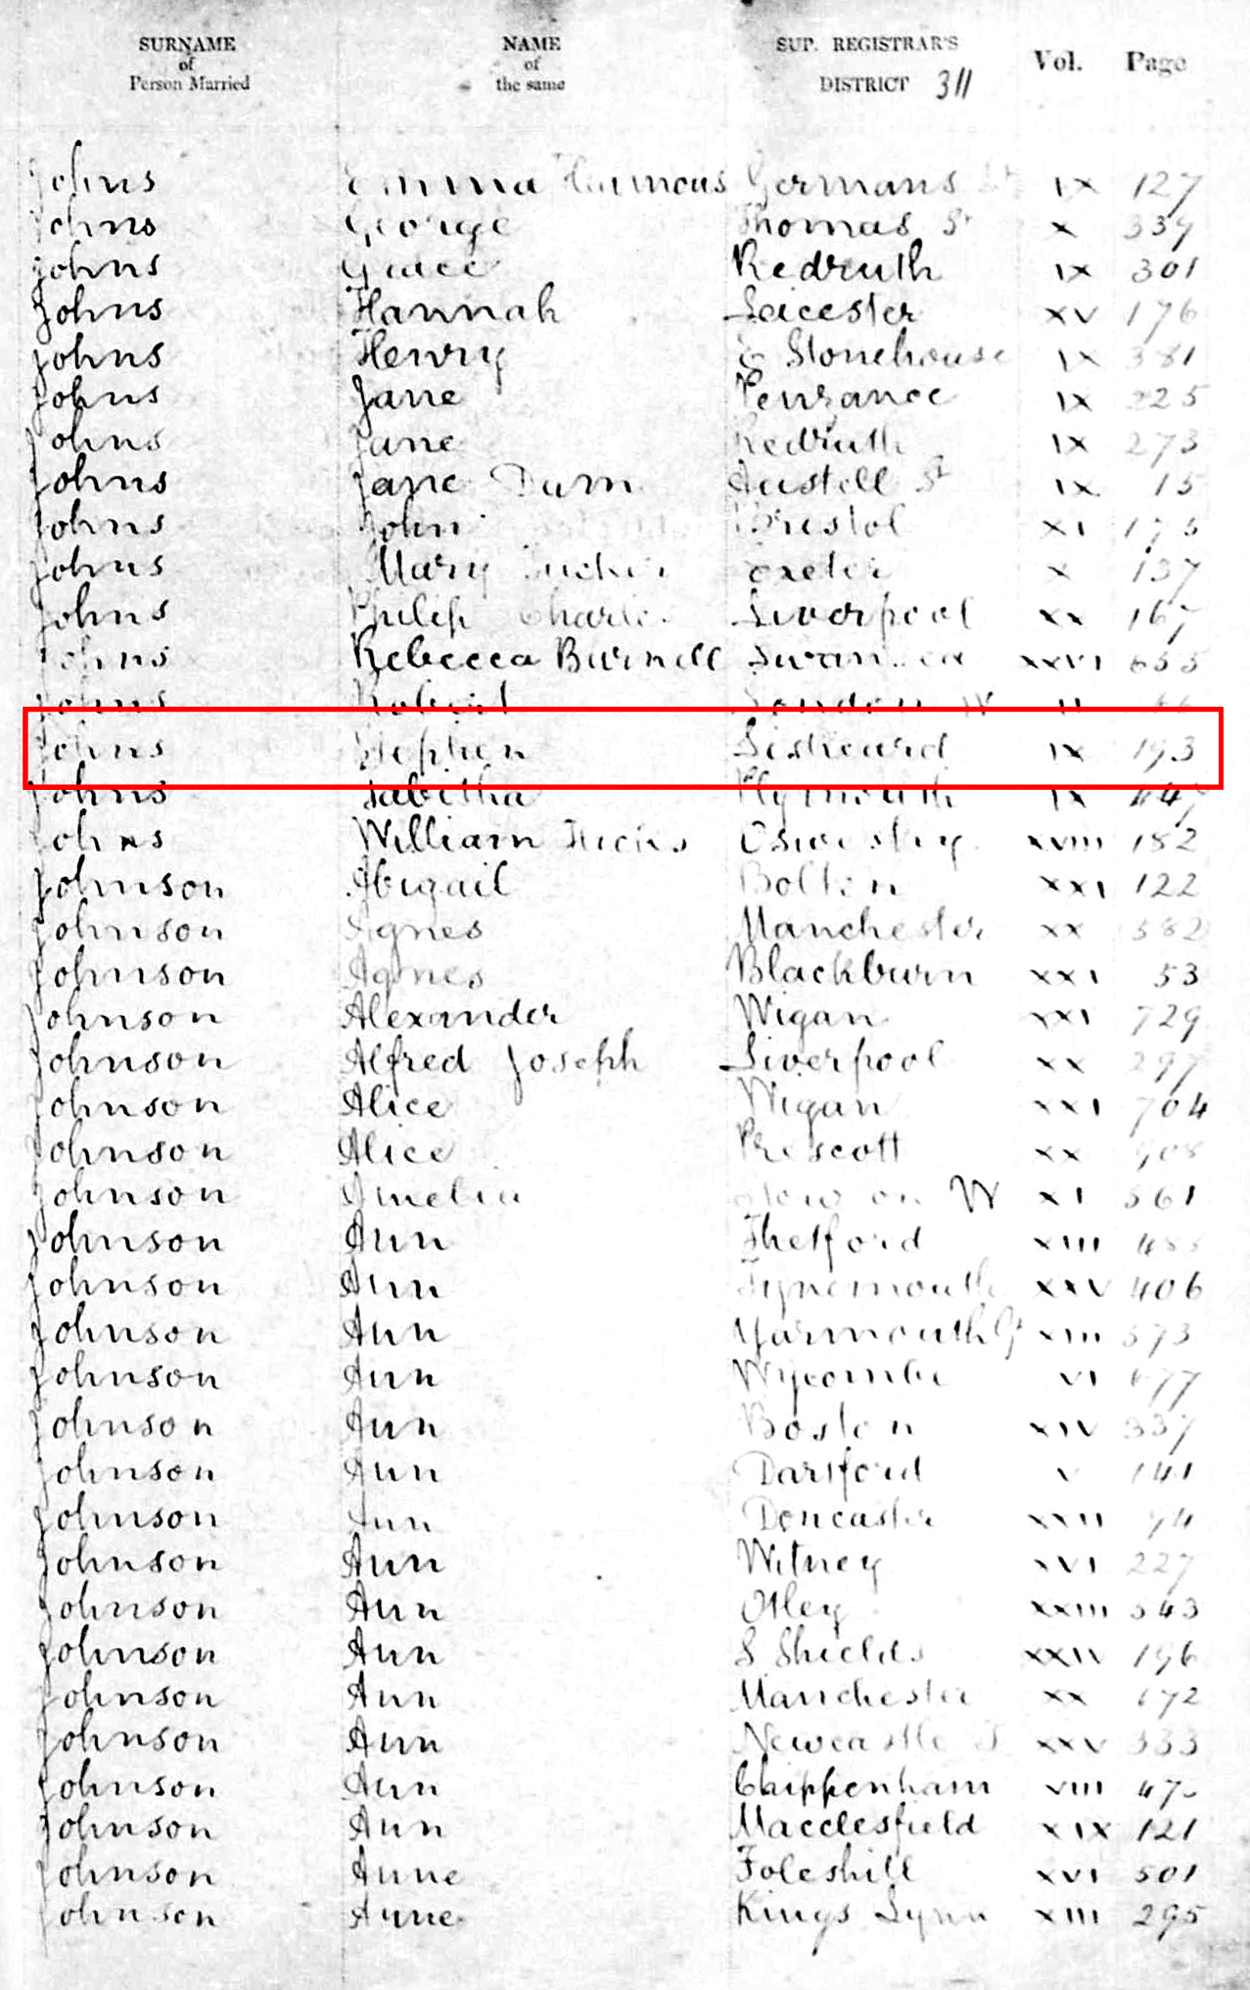 SURNAME of Person Married NAME of the same SUP. REGISTRAR'S DISTRICT 311 Vol. Page
Johns Emma Germans IX 127
Johns George Thomas St X 339
Johns Grace Redruth IX 301
Johns Hannah Leicester XV 176
Johns Henry E Stonehouse IX 381
Johns Jane Penzance IX 225
Johns Jane Redruth IX 273
Johns Jane Dunn Austell St IX 15
Johns John Bristol XI 175
Johns Mary Tucker Exeter X 137
Johns Philip Charles Liverpool XX 167
Johns Rebecca Burnell Swansea XXVI 655
Johns Robert London W II
Johns Stephen Liskeard IX 193
Johns Tabitha Plymouth IX 447
Johns William Hicks Oswestry XVIII 182
Johnson Abigail Bolton XXI 122
Johnson Agnes Manchester XX 582
Johnson Agnes Blackburn XXI 53
Johnson Alexander Wigan XXI 729
Johnson Alfred Joseph Liverpool XX 297
Johnson Alice Wigan XXI 704
Johnson Alice Prescott XX 908
Johnson Amelia Stow on W XI 561
Johnson Ann Thetford XIII
Johnson Ann Tynemouth XXV 406
Johnson Ann Yarmouth Gt XIII 573
Johnson Ann Wycombe VI 677
Johnson Ann Boston XIV 337
Johnson Ann Dartford V 141
Johnson Ann Doncaster XXII 94
Johnson Ann Witney XVI 227
Johnson Ann Otley XXIII 543
Johnson Ann S Shields XXIV 196
Johnson Ann Manchester XX 672
Johnson Ann Newcastle T XXV 333
Johnson Ann Chippenham VIII
Johnson Ann Macclesfield XIX 121
Johnson Anne Foleshill XVI 501
Johnson Anne Kings Lynn XIII 295